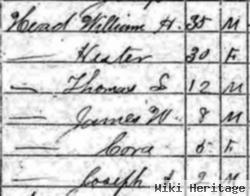 Head William H. 35 M
— Hester 30 F
— Thomas S 12 M
— James W. 8 M
— Cora 5 F
— Joseph 2 M
Miki Heritage